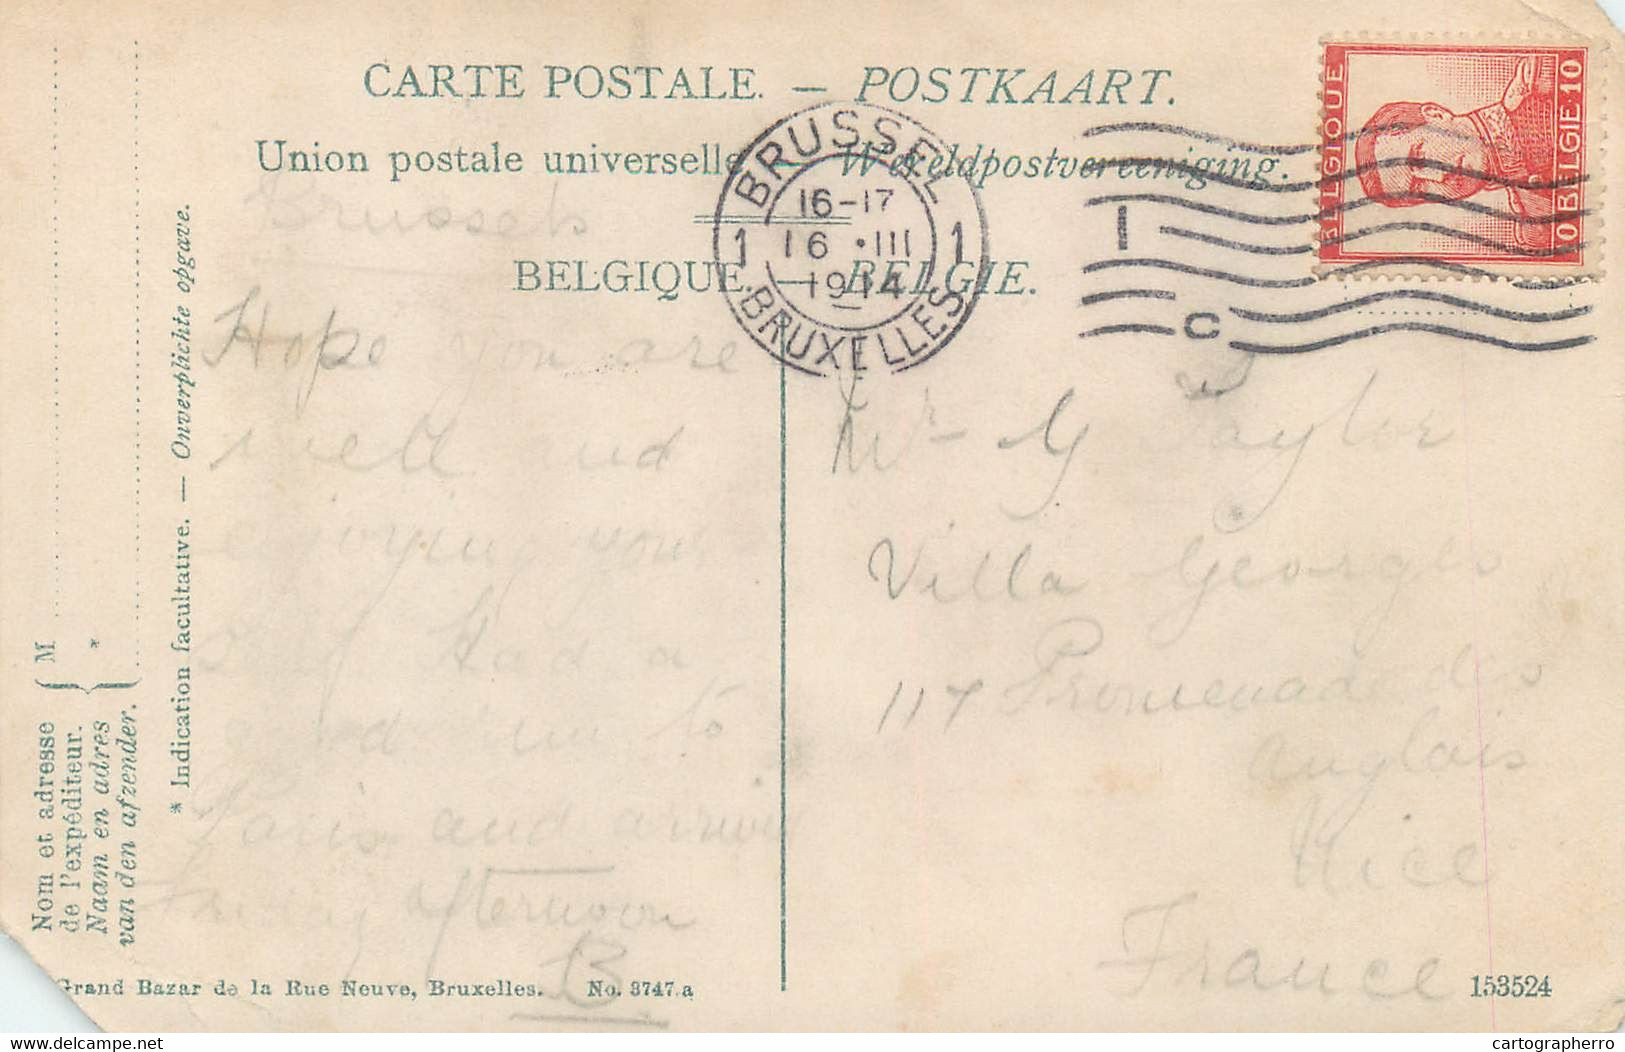 CARTE POSTALE. — POSTKAART.
Union postale universelle — Wereldpostvereeniging.
BELGIQUE. — BELGIE.
BRUSSEL
16-17
1 16 · III 1
1914
BRUXELLES
1
C
BELGIQUE
10 BELGIE 10
Brussels
Hope you are
well and
enjoying your
self Had a
good time to
Paris and arrive
Friday afternoon
B
Mr G Taylor
Villa Georges
117 Promenade des
Anglais
Nice
France
Nom et adresse
de l'expéditeur.
Naam en adres
van den afzender.
M
*
* Indication facultative. — Onverplichte opgave.
Grand Bazar de la Rue Neuve, Bruxelles. No. 3747.a
153524
www.delcampe.net
cartographerro